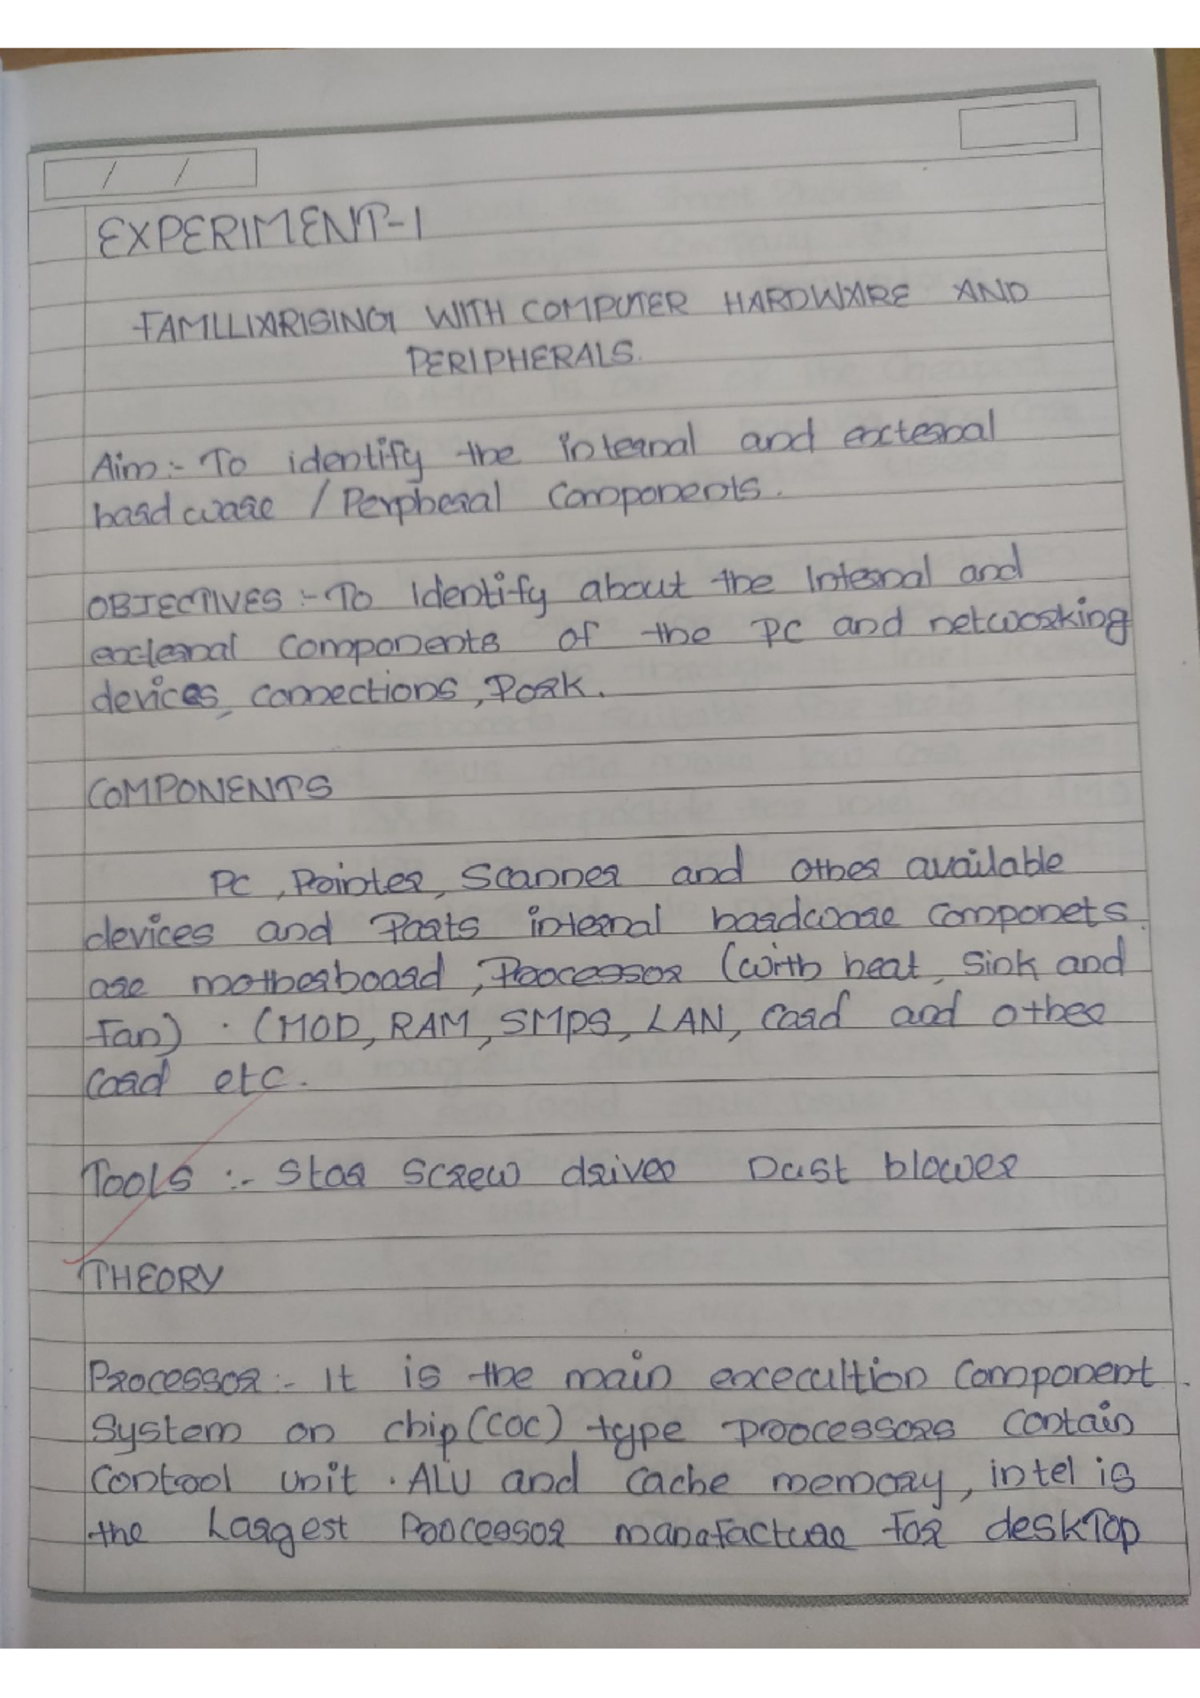 EXPERIMENT-1
FAMILLIARISING WITH COMPUTER HARDWARE AND
PERIPHERALS.
Aim:- To identify the internal and external
hardware / Perpheral Components.
OBJECTIVES :- To Identify about the Internal and
external Components of the PC and networking
devices, connections, Pork.
COMPONENTS
PC, Printer, Scanner and other available
devices and Parts internal hardware componets
are motherboard, Processor (with heat, Sink and
Fan) . (MOD, RAM, SMPS, LAN, Card and other
Card etc.
Tools :- Star Screw driver Dust blower
THEORY
Processor :- It is the main excecultion Component.
System on chip (COC) type processors contain
Control unit . ALU and Cache memory, intel is
the Largest Processor manafacture For deskTop